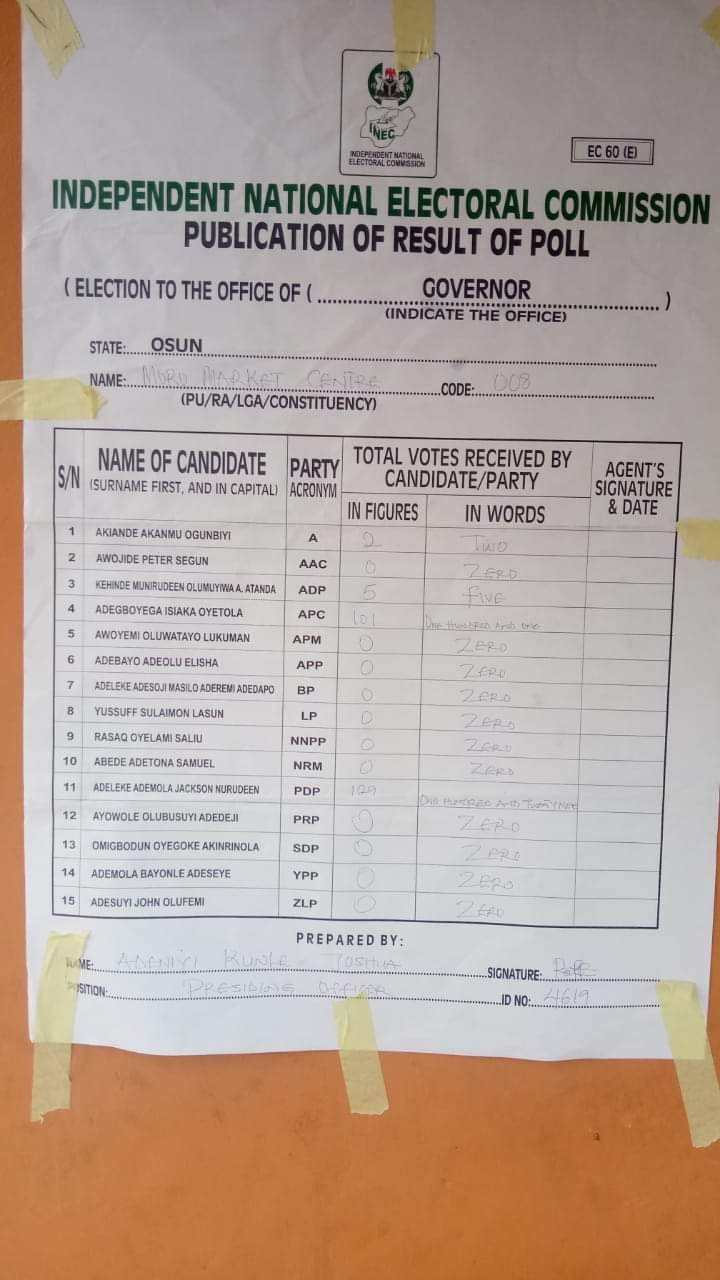 INEC
INDEPENDENT NATIONAL
ELECTORAL COMMISSION
EC 60 (E)
INDEPENDENT NATIONAL ELECTORAL COMMISSION
PUBLICATION OF RESULT OF POLL
( ELECTION TO THE OFFICE OF ( GOVERNOR )
(INDICATE THE OFFICE)
STATE: OSUN
NAME: MORO MARKET CENTRE CODE: 008
(PU/RA/LGA/CONSTITUENCY)
S/N NAME OF CANDIDATE (SURNAME FIRST, AND IN CAPITAL) PARTY ACRONYM TOTAL VOTES RECEIVED BY CANDIDATE/PARTY AGENT'S SIGNATURE & DATE
IN FIGURES IN WORDS
1 AKIANDE AKANMU OGUNBIYI A 2 TWO
2 AWOJIDE PETER SEGUN AAC 0 ZERO
3 KEHINDE MUNIRUDEEN OLUMUYIWA A. ATANDA ADP 5 FIVE
4 ADEGBOYEGA ISIAKA OYETOLA APC 101 ONE HUNDRED AND ONE
5 AWOYEMI OLUWATAYO LUKUMAN APM 0 ZERO
6 ADEBAYO ADEOLU ELISHA APP 0 ZERO
7 ADELEKE ADESOJI MASILO ADEREMI ADEDAPO BP 0 ZERO
8 YUSSUFF SULAIMON LASUN LP 0 ZERO
9 RASAQ OYELAMI SALIU NNPP 0 ZERO
10 ABEDE ADETONA SAMUEL NRM 0 ZERO
11 ADELEKE ADEMOLA JACKSON NURUDEEN PDP 129 ONE HUNDRED AND TWENTY NINE
12 AYOWOLE OLUBUSUYI ADEDEJI PRP 0 ZERO
13 OMIGBODUN OYEGOKE AKINRINOLA SDP 0 ZERO
14 ADEMOLA BAYONLE ADESEYE YPP 0 ZERO
15 ADESUYI JOHN OLUFEMI ZLP 0 ZERO
PREPARED BY:
NAME: ADENIYI KUNLE TOSHUA SIGNATURE:
POSITION: PRESIDING OFFICER ID NO: 4619